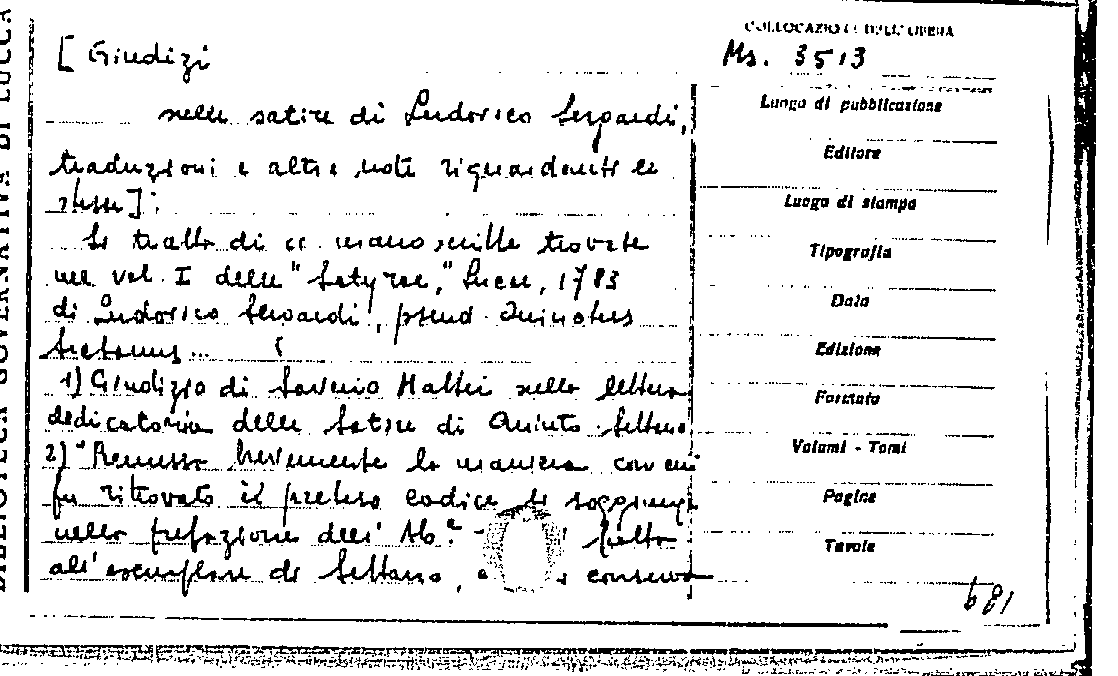 BIBLIOTECA GOVERNATIVA DI LUCCA
COLLOCAZIONE DELL'OPERA
[ Giudizi
Ms. 3513
nelle satire di Ludovico Sergardi,
traduzioni e altre note riguardanti le
stesse]:
Si tratta di cc. manoscritte trovate
nel vol. I delle "Satyrae", Lucae, 1783
di Ludovico Sergardi, pseud. Quinctus
Sectanus...
1) Giudizio di Saverio Mattei nella lettera
dedicatoria delle Satire di Quinto Settano
2) "Premessa brevemente la maniera con cui
fu ritrovato il preteso codice si soggiunge
nella prefazione dell' Ab.e
all' esemplare di Settano, conserva
Luogo di pubblicazione
Editore
Luogo di stampa
Tipografia
Data
Edizione
Formato
Volumi - Tomi
Pagine
Tavole